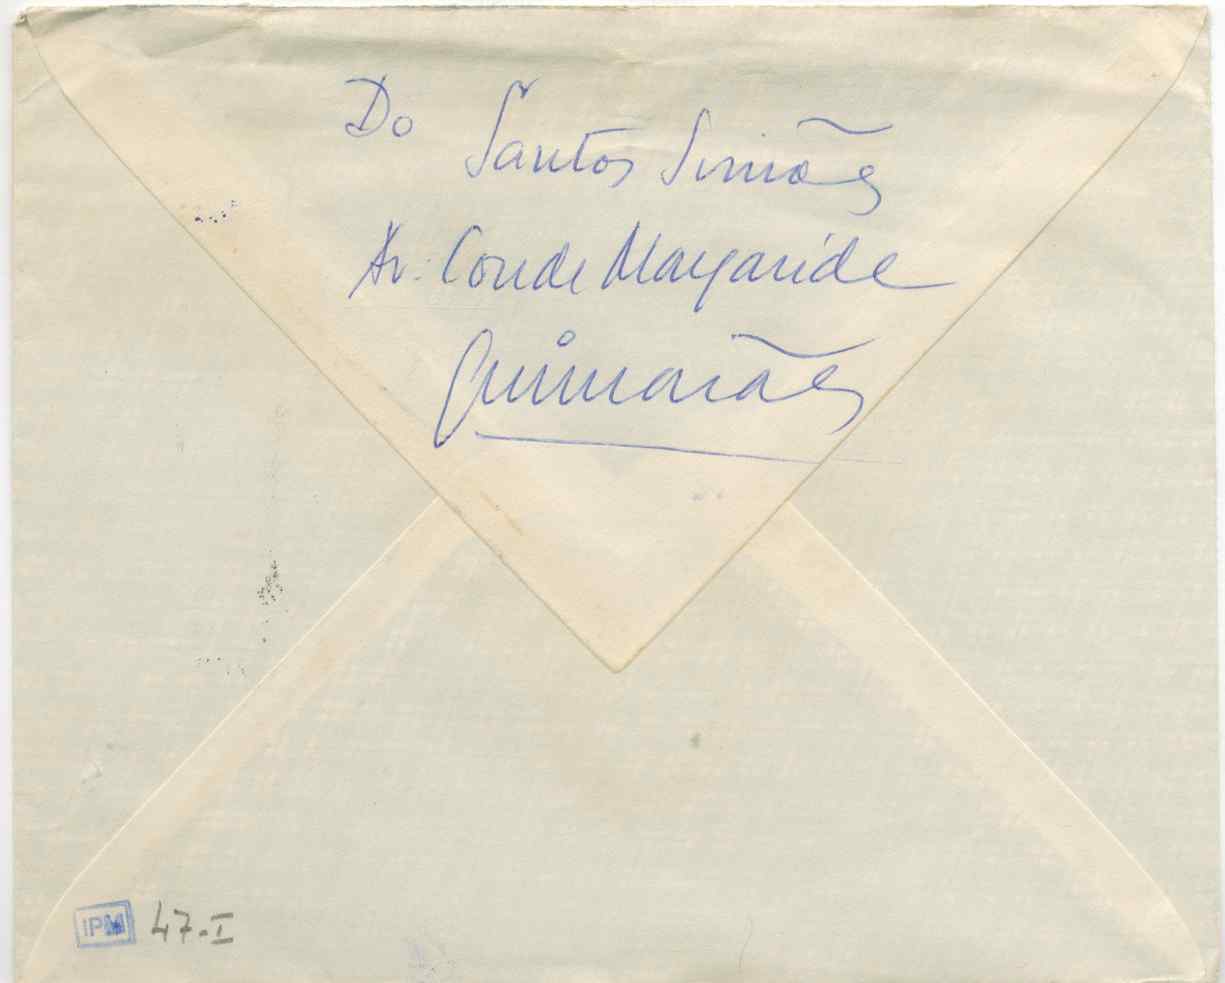 Do Santos Simões
Av. Conde Margaride
Guimarães
IPM 47-I